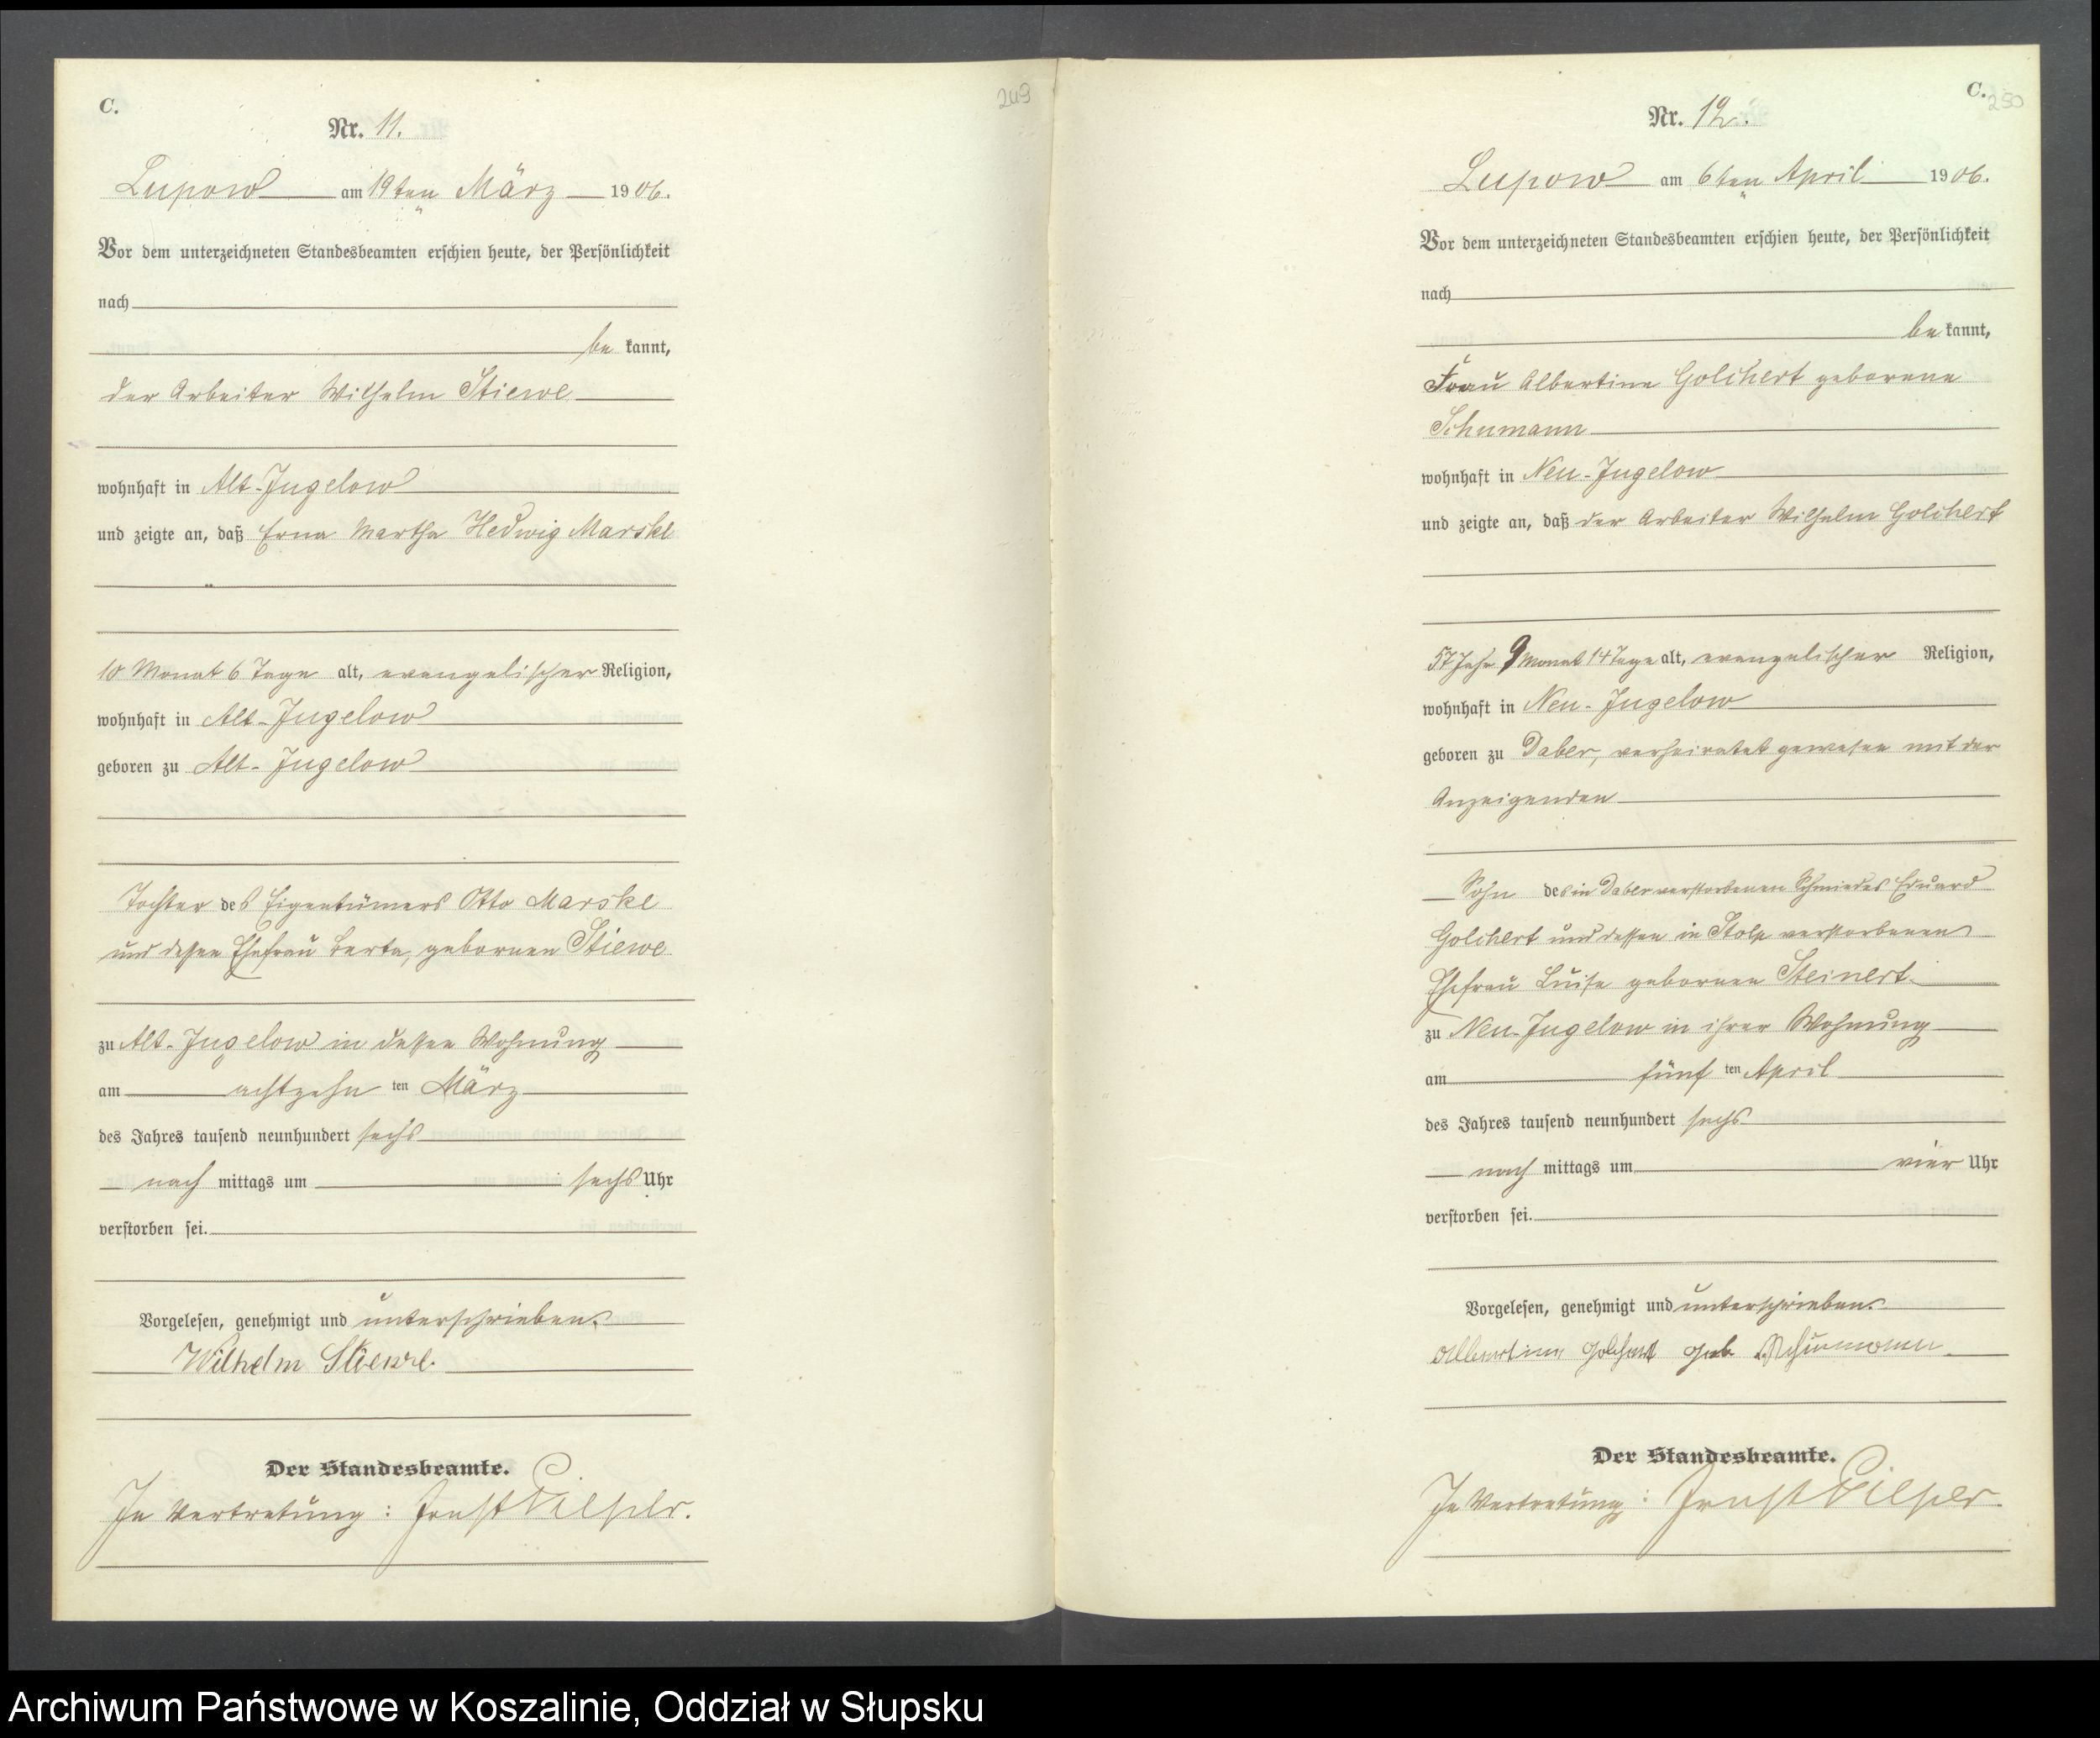 C.
249
Nr. 11.
Lupow am 19ten März 1906.
Vor dem unterzeichneten Standesbeamten erschien heute, der Persönlichkeit
nach
be kannt,
der Arbeiter Wilhelm Stiewe
wohnhaft in Alt-Jugelow
und zeigte an, daß Erna Martha Hedwig Marske
10 Monat 6 Tage alt, evangelischer Religion,
wohnhaft in Alt-Jugelow
geboren zu Alt-Jugelow
Tochter des Eigentümers Otto Marske
und dessen Ehefrau Berta, gebornen Stiewe
zu Alt-Jugelow in dessen Wohnung
am achtzehn ten März
des Jahres tausend neunhundert sechs
nach mittags um sechs Uhr
verstorben sei.
Vorgelesen, genehmigt und unterschrieben.
Wilhelm Stiewe.
Der Standesbeamte.
In Vertretung: Ernst Pieper.
C.
250
Nr. 12.
Lupow am 6ten April 1906.
Vor dem unterzeichneten Standesbeamten erschien heute, der Persönlichkeit
nach
be kannt,
Frau Albertine Golchert geborene
Schumann
wohnhaft in Neu-Jugelow
und zeigte an, daß der Arbeiter Wilhelm Golchert
57 Jahr 9 Monat 14 Tage alt, evangelischer Religion,
wohnhaft in Neu-Jugelow
geboren zu Daber, verheiratet gewesen mit der
Anzeigenden
Sohn des in Daber verstorbenen Schmiedes Eduard
Golchert und dessen in Stolp verstorbenen
Ehefrau Luise gebornen Steinert
zu Neu-Jugelow in ihrer Wohnung
am fünf ten April
des Jahres tausend neunhundert sechs
nach mittags um vier Uhr
verstorben sei.
Vorgelesen, genehmigt und unterschrieben.
Albertine Golchert geb. Schumann
Der Standesbeamte.
In Vertretung: Ernst Pieper.
Archiwum Państwowe w Koszalinie, Oddział w Słupsku